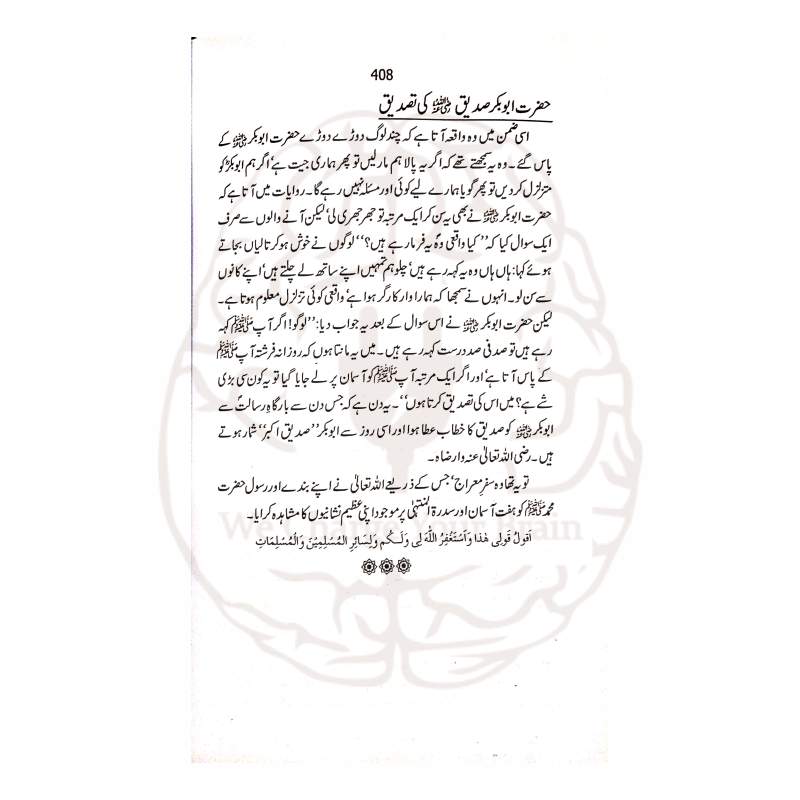 408
حضرت ابوبکر صدیق رضی اللہ عنہ کی تصدیق
اسی ضمن میں وہ واقعہ آتا ہے کہ چند لوگ دوڑے دوڑے حضرت ابوبکر رضی اللہ عنہ کے
پاس گئے۔ وہ یہ سمجھتے تھے کہ اگر یہ پالا ہم مار لیں تو پھر ہماری جیت ہے، اگر ہم ابوبکرؓ کو
متزلزل کر دیں تو پھر گویا ہمارے لیے کوئی اور مسئلہ نہیں رہے گا۔ روایات میں آتا ہے کہ
حضرت ابوبکر رضی اللہ عنہ نے بھی یہ سن کر ایک مرتبہ تو جھرجھری لی، لیکن آنے والوں سے صرف
ایک سوال کیا کہ ’’کیا واقعی وہؐ یہ فرما رہے ہیں؟‘‘ لوگوں نے خوش ہو کر تالیاں بجاتے
ہوئے کہا: ہاں ہاں وہ یہ کہہ رہے ہیں، چلو ہم تمہیں اپنے ساتھ لے چلتے ہیں، اپنے کانوں
سے سن لو۔ انہوں نے سمجھا کہ ہمارا وار کارگر ہوا ہے، واقعی کوئی تزلزل معلوم ہوتا ہے۔
لیکن حضرت ابوبکر رضی اللہ عنہ نے اس سوال کے بعد یہ جواب دیا: ’’لوگو! اگر آپ ﷺ کہہ
رہے ہیں تو صد فی صد درست کہہ رہے ہیں۔ میں یہ مانتا ہوں کہ روزانہ فرشتہ آپ ﷺ
کے پاس آتا ہے، اور اگر ایک مرتبہ آپ ﷺ کو آسمان پر لے جایا گیا تو یہ کون سی بڑی
شے ہے؟ میں اس کی تصدیق کرتا ہوں‘‘۔ یہ دن ہے کہ جس دن سے بارگاہِ رسالتؐ سے
ابوبکر رضی اللہ عنہ کو صدیق کا خطاب عطا ہوا اور اسی روز سے ابوبکر ’’صدیق اکبر‘‘ شمار ہوتے
ہیں۔ رضی اللہ تعالیٰ عنہ وارضاہ۔
تو یہ تھا وہ سفرِ معراج، جس کے ذریعے اللہ تعالیٰ نے اپنے بندے اور رسول حضرت
محمد ﷺ کو ہفت آسمان اور سدرۃ المنتہیٰ پر موجود اپنی عظیم نشانیوں کا مشاہدہ کرایا۔
We Change Your Brain
اَقُولُ قَولِی ھٰذا وَاَستَغفِرُ اللّٰہَ لِی وَلَکُم وَلِسَائِرِ المُسلِمِینَ وَالمُسلِمَاتِ